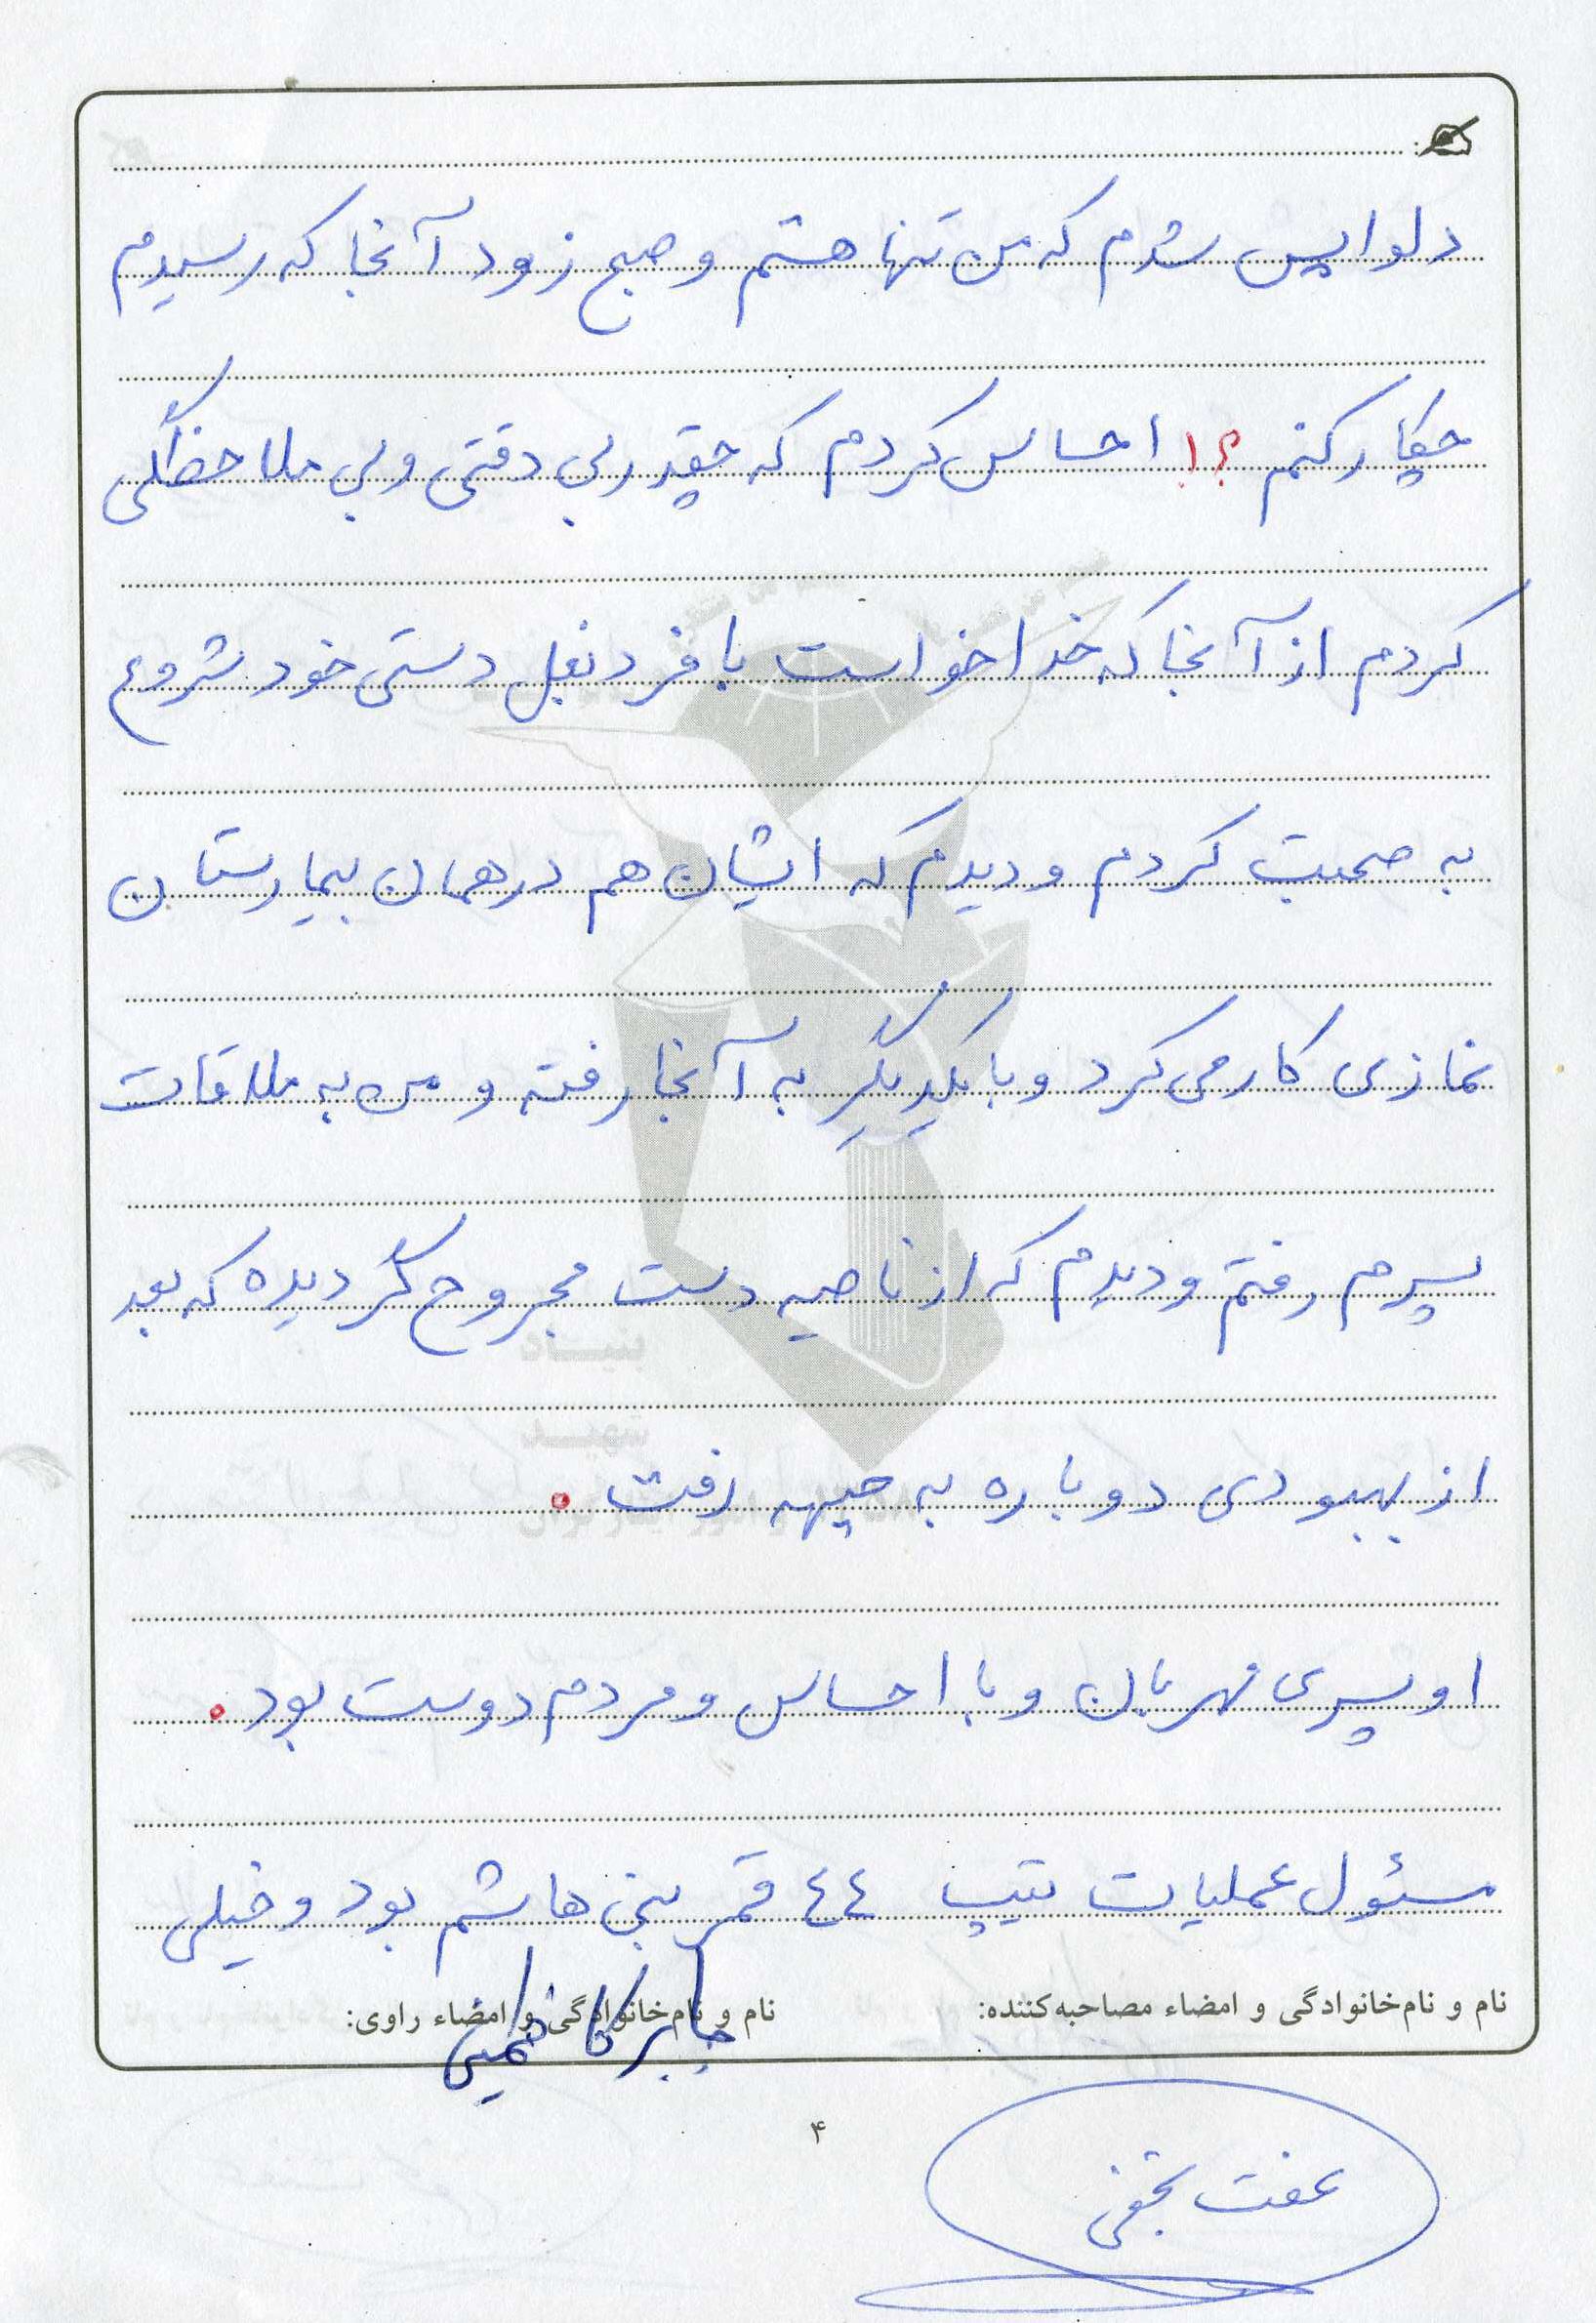 دلواپس شدم که من تنها هستم و صبح زود آنجا که رسیدم
چکار کنم ؟! احساس کردم که چقدر بی دقتی و بی ملاحظگی
کردم از آنجا که خدا خواست با فرد بغل دستی خود شروع
به صحبت کردم و دیدم که ایشان هم در همان بیمارستان
نمازی کار می کرد و با یکدیگر به آنجا رفته و من به ملاقات
پسرم رفتم و دیدم که از ناحیه دست مجروح گردیده که بعد
از بهبودی دوباره به جبهه رفت .
او پسری مهربان و با احساس و مردم دوست بود .
مسئول عملیات تیپ ٤٤ قمر بنی هاشم بود و خیلی
نام و نام‌خانوادگی و امضاء مصاحبه‌کننده: نام و نام‌خانوادگی و امضاء راوی:
جابر کاظمینی
۴
عفت نجفی
بنیاد
شهید